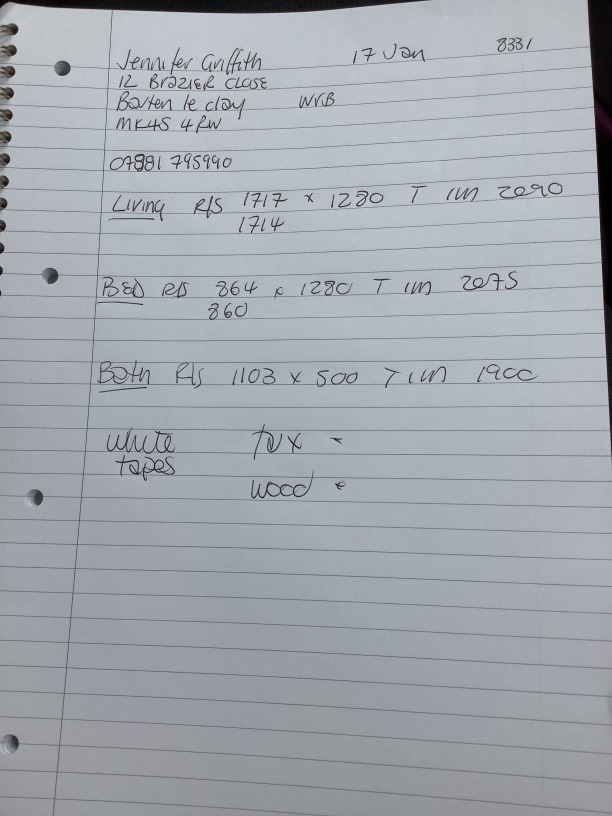 Jennifer Griffith 17 Jan 8331
12 BRAZIER CLOSE
Barten le clay WVB
MK45 4RW
07881 795990
Living R/S 1717 x 1280 T 1m 2090
1714
BED R/S 864 x 1280 T 1m 2075
860
Bath R/S 1103 x 500 T 1m 1900
white fux -
tapes
wood -